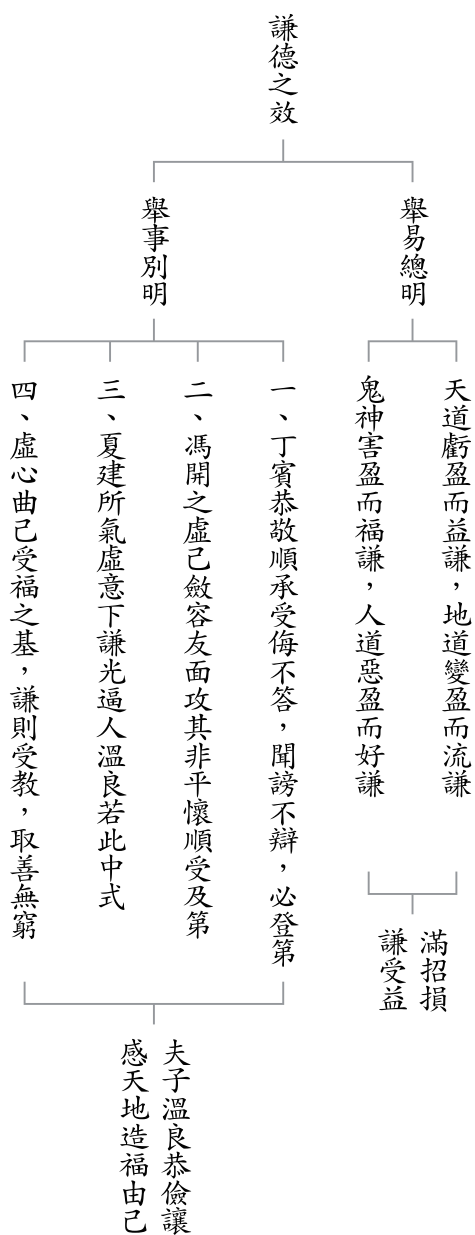 謙德之效
舉易總明
天道虧盈而益謙，地道變盈而流謙
鬼神害盈而福謙，人道惡盈而好謙
滿招損
謙受益
舉事別明
一、丁賓恭敬順承受侮不答，聞謗不辯，必登第
二、馮開之虛己斂容友面攻其非平懷順受及第
三、夏建所氣虛意下謙光逼人溫良若此中式
四、虛心曲己受福之基，謙則受教，取善無窮
夫子溫良恭儉讓
感天地造福由己